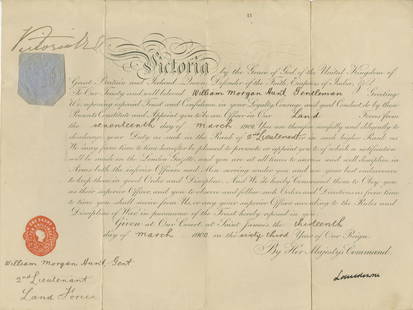 Victoria R I
Victoria by the Grace of God of the United Kingdom of
Great Britain and Ireland Queen, Defender of the Faith, Empress of India, &c.
To Our Trusty and well beloved William Morgan Hunt Gentleman Greeting:
We, reposing especial Trust and Confidence in your Loyalty, Courage, and good Conduct, do by these
Presents Constitute and Appoint you to be an Officer in Our Land Forces from
the seventeenth day of March 1900. You are therefore carefully and diligently to
discharge your Duty as such in the Rank of 2nd Lieutenant or in such higher Rank as
We may from time to time hereafter be pleased to promote or appoint you to, of which a notification
will be made in the London Gazette, and you are at all times to exercise and well discipline in
Arms both the inferior Officers and Men serving under you and use your best endeavours
to keep them in good Order and Discipline. And We do hereby Command them to Obey you
as their superior Officer, and you to observe and follow such Orders and Directions as from time
to time you shall receive from Us, or any your superior Officer, according to the Rules and
Discipline of War, in pursuance of the Trust hereby reposed in you.
Given at Our Court, at Saint James's, the thirteenth
day of March 1900 in the sixty third Year of Our Reign
By Her Majesty's Command.
William Morgan Hunt Gent
2nd Lieutenant
Land Forces
Lansdowne